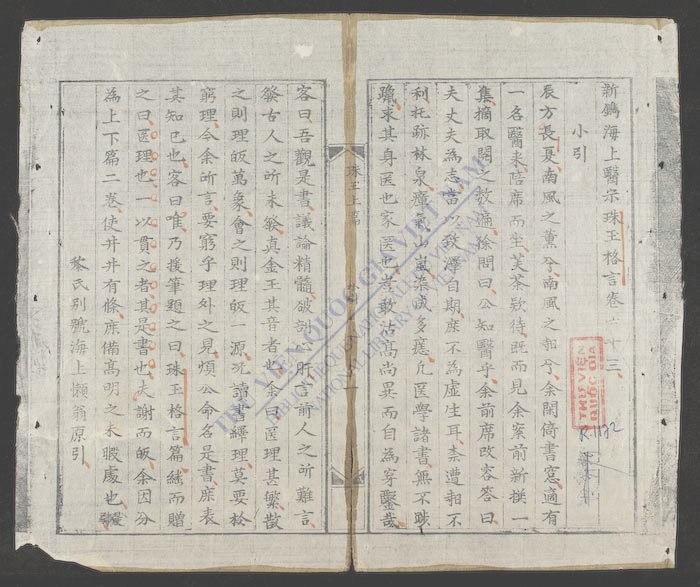 新鐫海上醫宗珠玉格言卷之十三
小引
辰方長夏南風之薰兮南風之和兮余閑倚書窓適有
一名醫來陪席而坐芙茶欵待旣而見余案前新撰一
集摘取閱之數遍徐問曰公知醫乎余前席改容答曰
夫丈夫為志當以致澤自期庶不為虛生耳柰遭相不
利托跡林泉瘴氣山嵐染成多瘧凡醫學諸書無不跋
躐求其身医也家医也豈敢沽高尚異而自為穿鑿哉
珠玉上篇
客曰吾觀是書議論精髓破剖心肝言前人之所難言
發古人之所未發真金玉其音者也余曰医理甚繁散
之則理皈萬象會之則理皈一源况讀書繹理莫要於
窮理今余所言要窮乎理外之見煩公命名是書庶表
其知已也客曰唯乃援筆題之曰珠玉格言篇繇而贈
之曰医理也一以貫之者其是書也夫謝而皈余因分
為上下篇二卷使井井有條庶備高明之未暇處也
黎氏别號海上懶翁原引
THƯ VIỆN QUỐC GIA VIỆT NAM
BIBLIOTHEQUE NATIONALE DU VIETNAM
NATIONAL LIBRARY OF VIETNAM
THƯ VIỆN
QUỐC GIA
R.1172